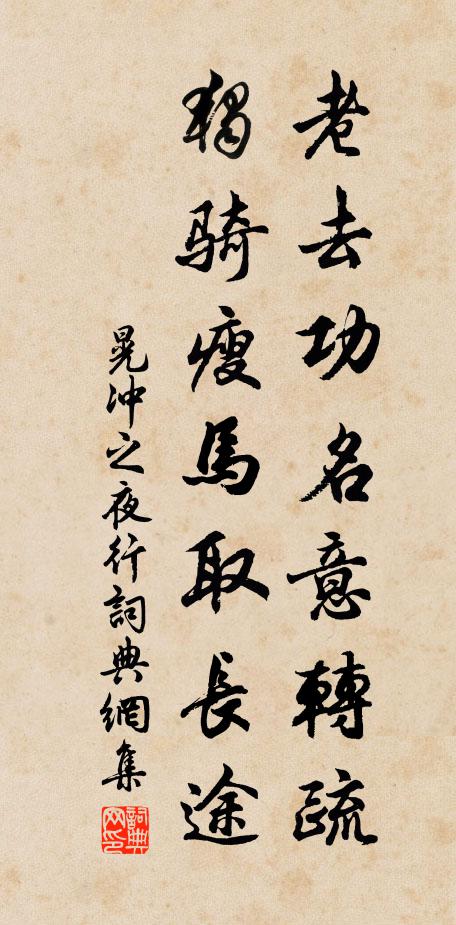 老去功名意轉疏
獨騎瘦馬取長途
晁沖之夜行詞典網集
詞典网印